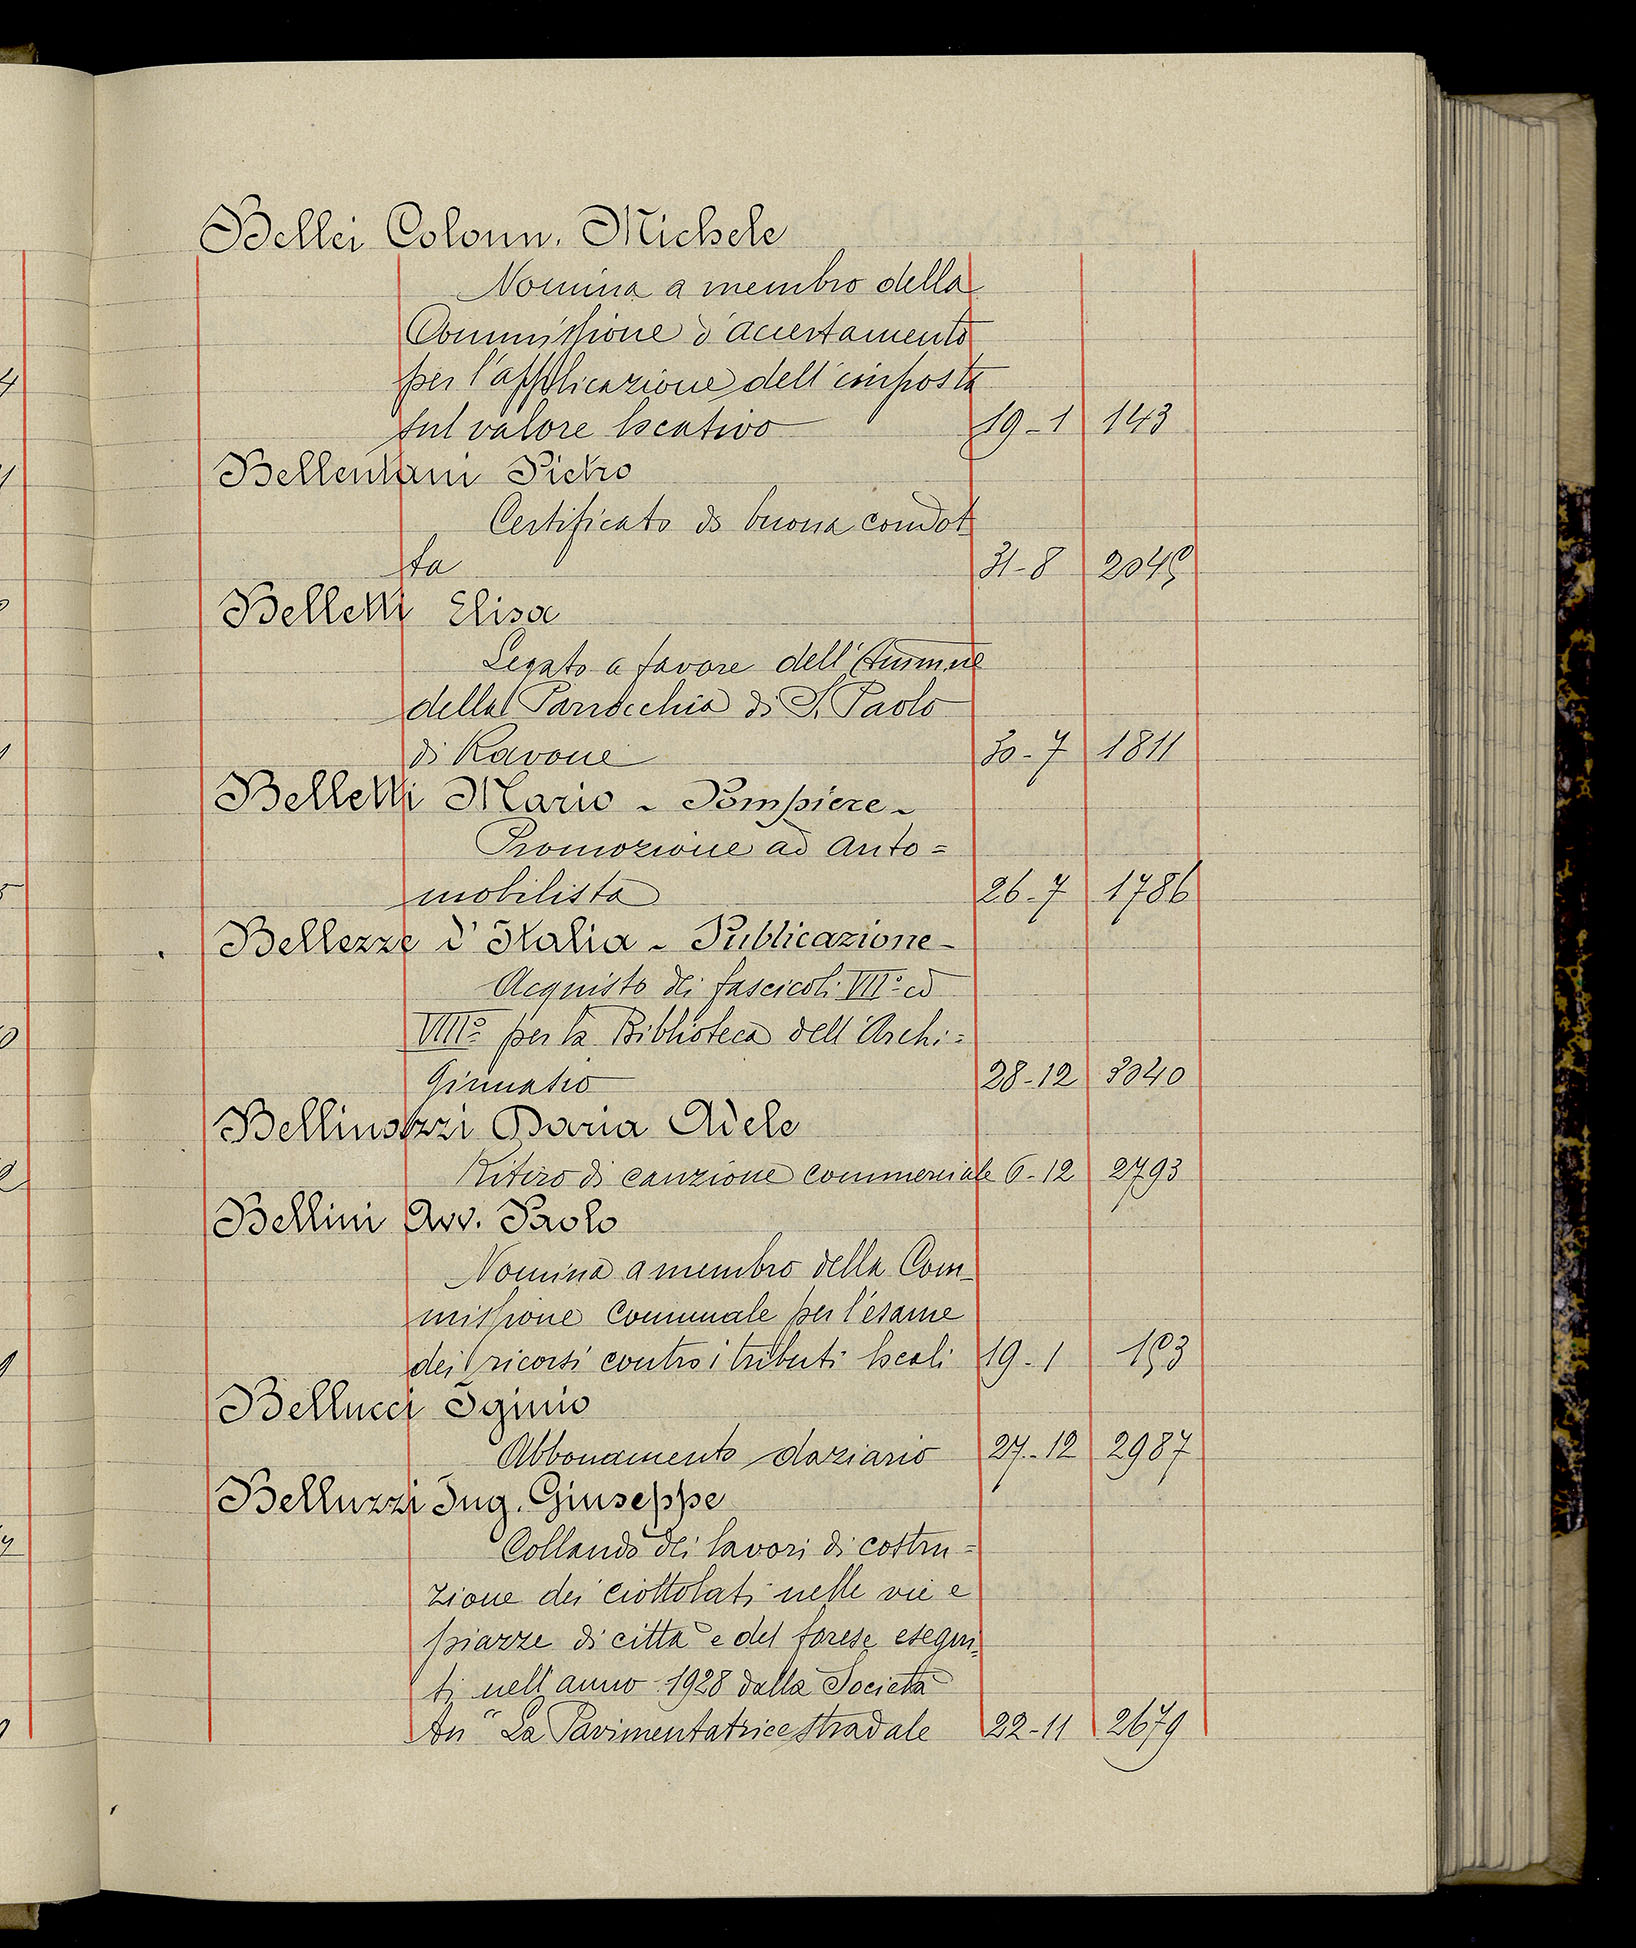 Bellei Colonn. Michele
Nomina a membro della
Commissione d'accertamento
per l'applicazione dell'imposta
sul valore locativo 19-1 143
Bellentani Pietro
Certificato di buona condot
ta 31-8 2045
Belletti Elisa
Legato a favore dell'Amm.ne
della Parrocchia di S. Paolo
di Ravone 30-7 1811
Belletti Mario - Pompiere -
Promozione ad auto=
mobilista 26-7 1786
Bellezze d'Italia - Publicazione -
Acquisto dei fascicoli VII° ed
VIII° per la Biblioteca dell'Archi=
ginnasio 28-12 3040
Bellinozzi Daria Adele
Ritiro di cauzione commerciale 6-12 2793
Bellini Avv. Paolo
Nomina a membro della Com-
missione Comunale per l'esame
dei ricorsi contro i tributi locali 19-1 153
Bellucci Iginio
Abbonamento daziario 27-12 2987
Belluzzi Ing. Giuseppe
Collaudo dei lavori di costru=
zione dei ciottolati nelle vie e
piazze di città e del forese esegui=
ti nell'anno 1928 dalla Società
An "La Pavimentatrice stradale 22-11 2679